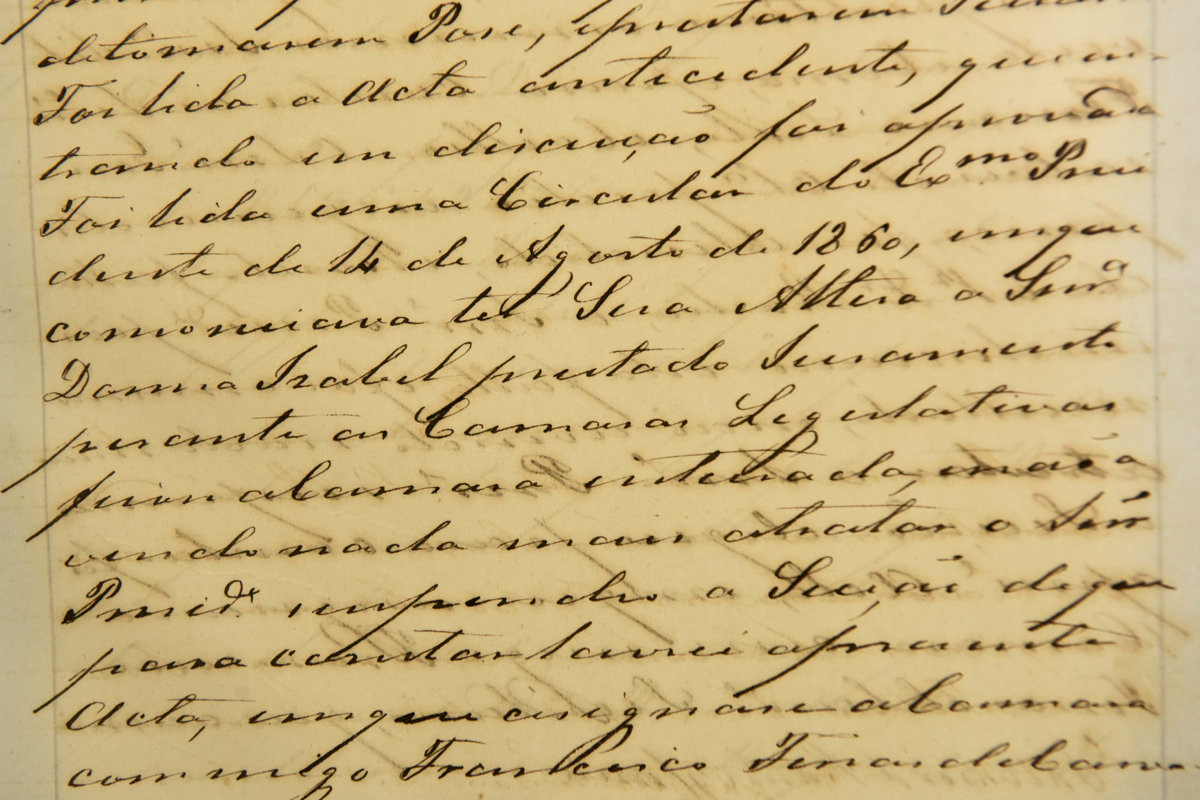 de tomarem Pose, e prestarem
Foi lida a Acta antecedente, que en-
trando em discução foi aprovada
Foi lida uma Circular do Exmo. Presi
dente de 14 de Agosto de 1860, em que
comonicava ter Sua Altesa a Snra.
Donna Izabel prestado Juramento
perante as Camaras Legeslativas
ficou a Camara inteirada, e não a
vendo nada mais a tratar o Snr
Presid.e suspendeo a Seção de que
para constar lavrei a presente
Acta, em que asignase a Camara
com migo Francisco